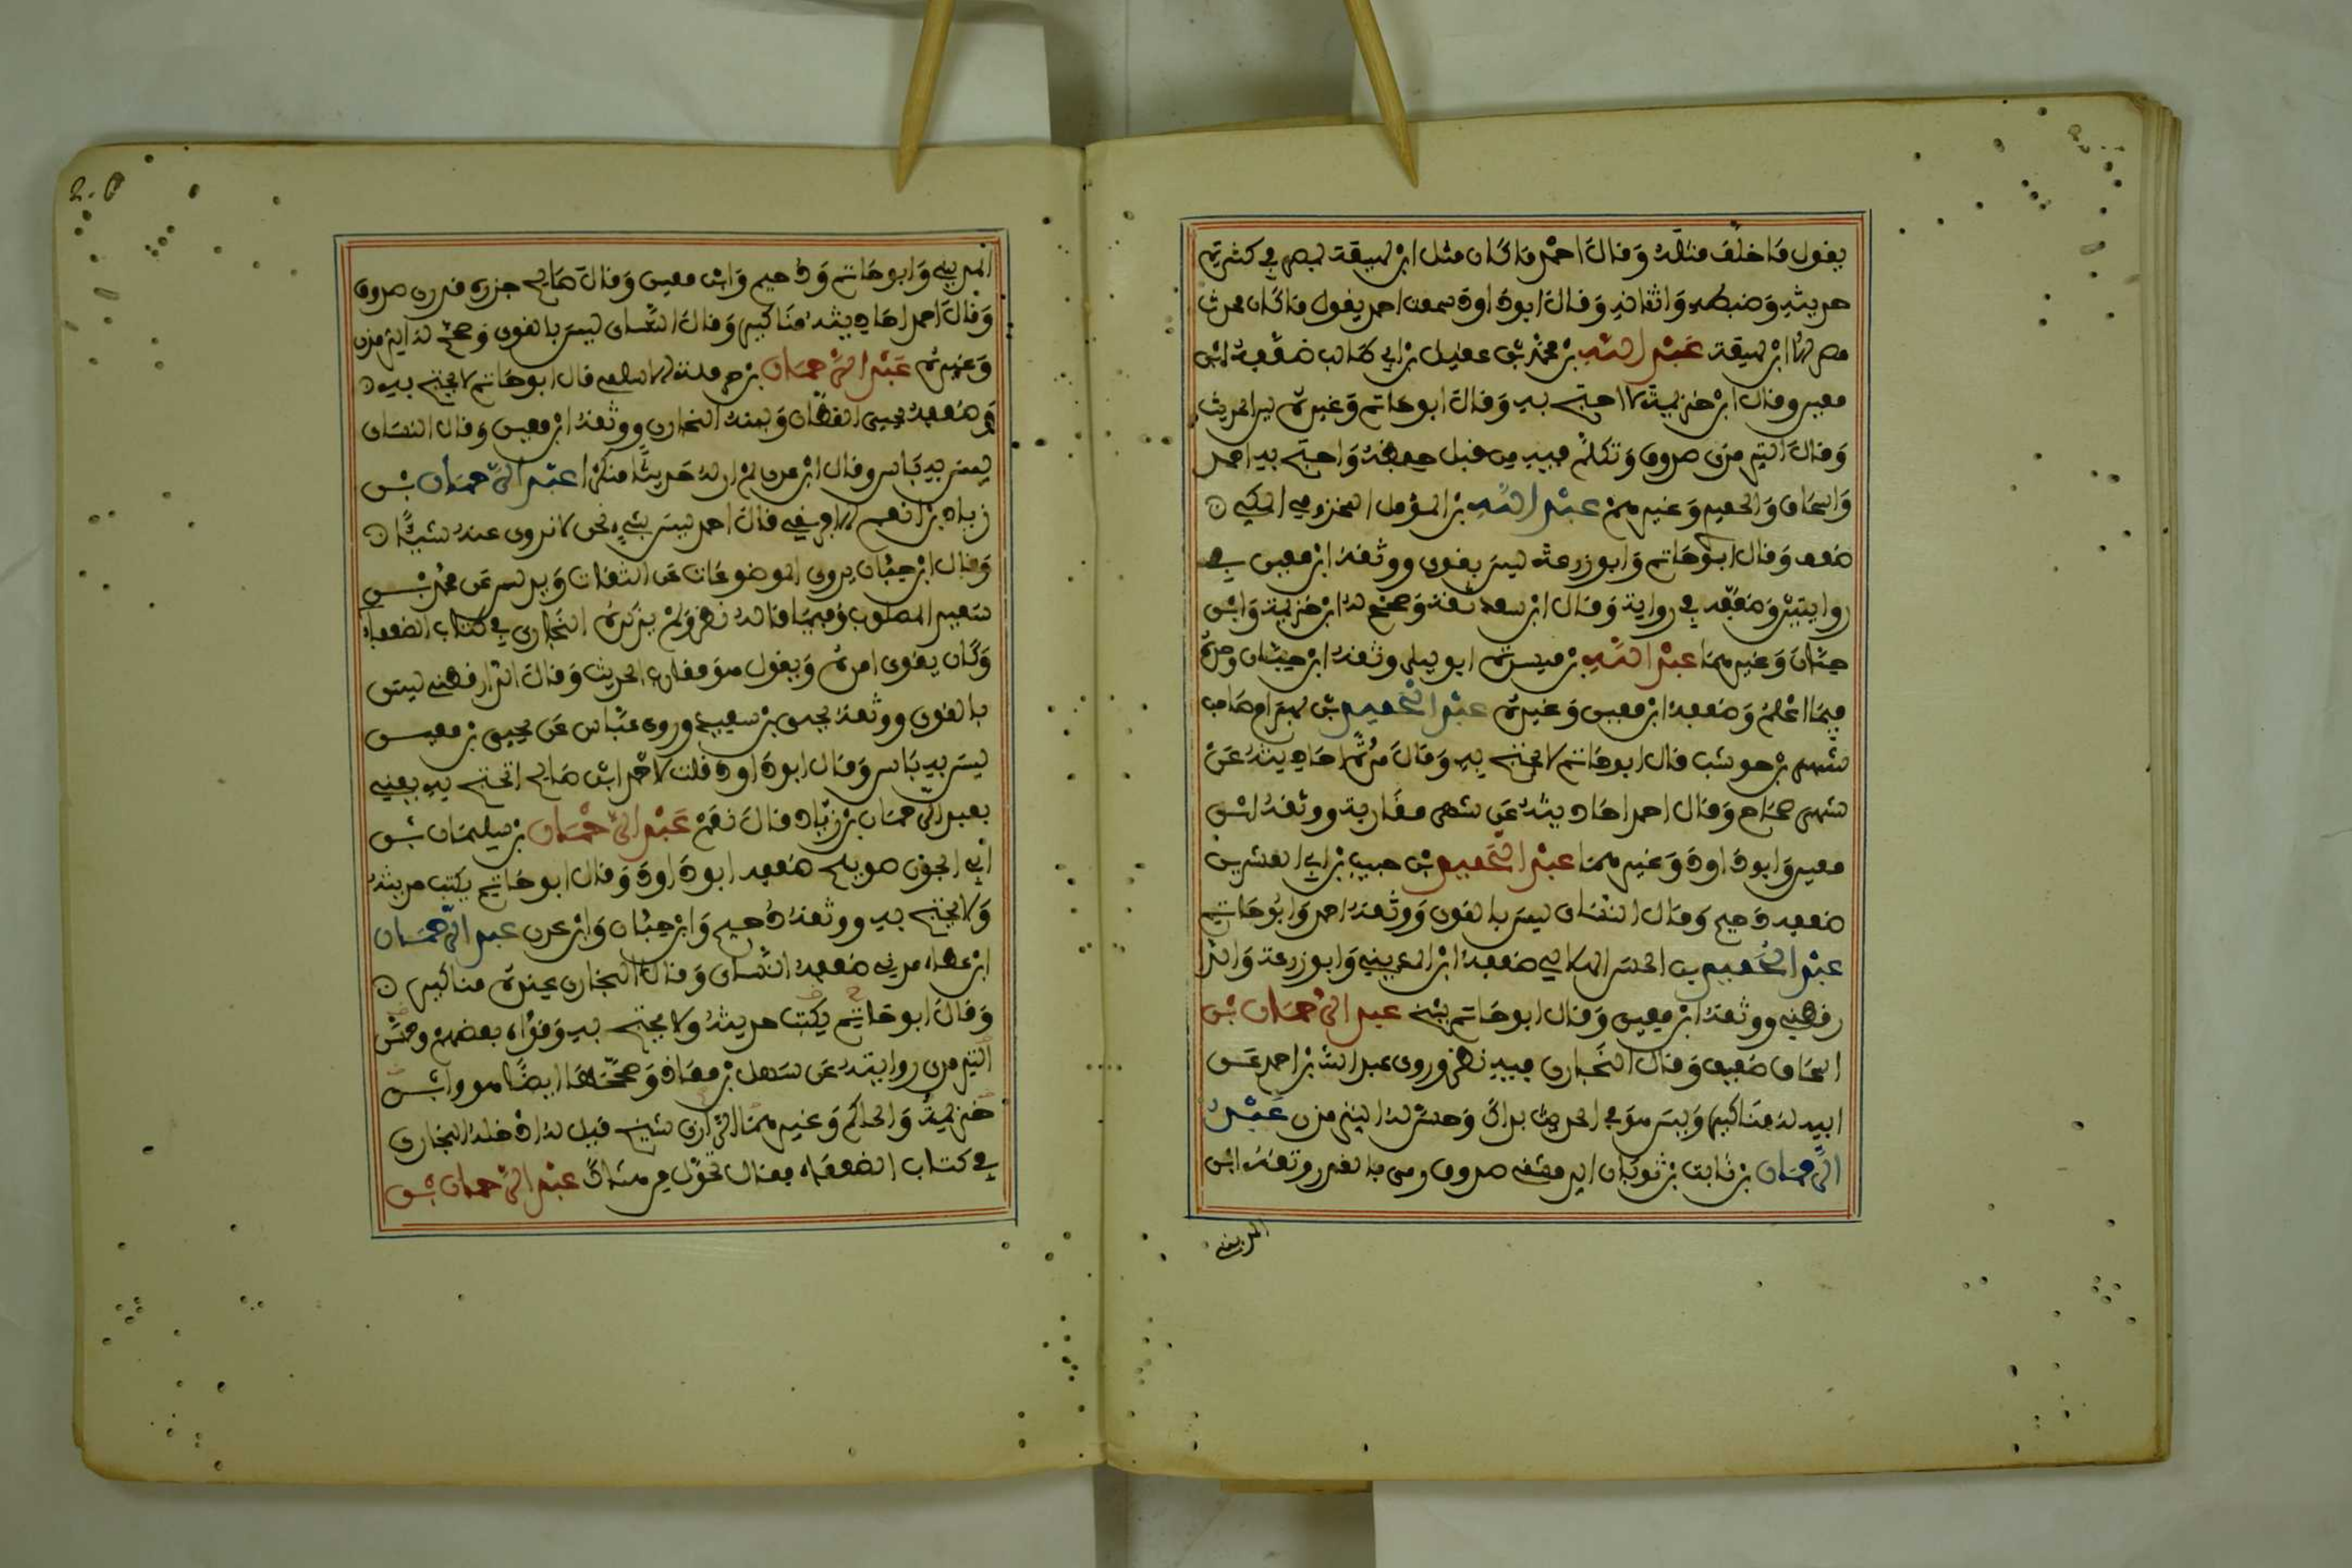 يقول ما خلف مثله وقال احمد ما كان مثل ابن لهيعة بمصر في كثرة
حديثه وضبطه واتقانه وقال ابو داود سمعت احمد يقول ما كان محدث
مصر الا ابن لهيعة عبد الله بن محمد بن عقيل بن ابي طالب ضعفه ابن
معين وقال ابن خزيمة لا احتج به وقال ابو حاتم وغيره لين الحديث
وقال الترمذي صدوق وتكلم فيه من قبل حفظه واحتج به احمد
واسحاق والحميدي وغيرهم عبد الله بن المؤمل المخزومي المكي
ضعف وقال ابو حاتم وابو زرعة ليس بقوي ووثقه ابن معين في
روايتين وضعفه في رواية وقال ابن سعد ثقة وصحح له ابن خزيمة وابن
حبان وغيرهما عبد الله بن ميسرة ابو ليلى وثقه ابن حبان وحده
فيما اعلم وضعفه ابن معين وغيره عبد الحميد بن بهرام صاحب
شهر بن حوشب قال ابو حاتم لا يحتج به وقال مرة احاديثه عن
شهر صحاح وقال احمد احاديثه عن شهر مقاربة ووثقه ابن
معين وابو داود وغيرهما عبد الحميد بن حبيب بن ابي العشرين
ضعفه دحيم وقال النسائي ليس بالقوي ووثقه احمد وابو حاتم
عبد الحميد بن الحسن الهلالي ضعفه ابن المديني وابو زرعة والدا
رقطني ووثقه ابن معين وقال ابو حاتم شيخ عبد الرحمان بن
اسحاق ضعيف وقال البخاري فيه نظر وروى عبد الله بن احمد عن
ابيه له مناكير وليس هو في الحديث بذاك وحسن له الترمذي عبد
الرحمان بن ثابت بن ثوبان الدمشقي صدوق رمي بالقدر وثقه ابن
المديني
المديني وابو حاتم ودحيم وابن معين وقال صالح جزرة قدري صدوق
وقال احمد احاديثه مناكير وقال النسائي ليس بالقوي وصحح له الترمذي
وغيره عبد الرحمان بن حرملة الاسلمي قال ابو حاتم لا يحتج به
وضعفه يحيى القطان ولينه البخاري ووثقه ابن معين وقال النسائي
ليس به باس وقال ابن عدي لم ار له حديثا منكرا عبد الرحمان بن
زياد بن انعم الافريقي قال احمد ليس بشيء نحن لا نروي عنه شيئا
وقال ابن حبان يروي الموضوعات عن الثقات ويدلس عن محمد بن
سعيد المصلوب وفيما قاله نظر ولم يذكره البخاري في كتاب الضعفاء
وكان يقوي امره ويقول هو مقارب الحديث وقال الدارقطني ليس
بالقوي ووثقه يحيى بن سعيد وروى عباس عن يحيى بن معين
ليس به باس وقال ابو داود قلت لاحمد ابن صالح اتحتج به يعني
بعبد الرحمان بن زياد قال نعم عبد الرحمان بن سليمان بن
ابي الجون صويلح ضعفه ابو داود وقال ابو حاتم يكتب حديثه
ولا يحتج به ووثقه دحيم وابن حبان وابن عدي عبد الرحمان
ابن عطاء مدني ضعفه النسائي وقال البخاري عنده مناكير
وقال ابو حاتم يكتب حديثه ولا يحتج به وقواه بعضهم وحسن
الترمذي روايته عن سهل بن معاذ وصححها ايضا هو وابن
خزيمة والحاكم وغيرهم الرازي شيخ قيل له ادخله البخاري
في كتاب الضعفاء فقال تحول من هناك عبد الرحمان بن